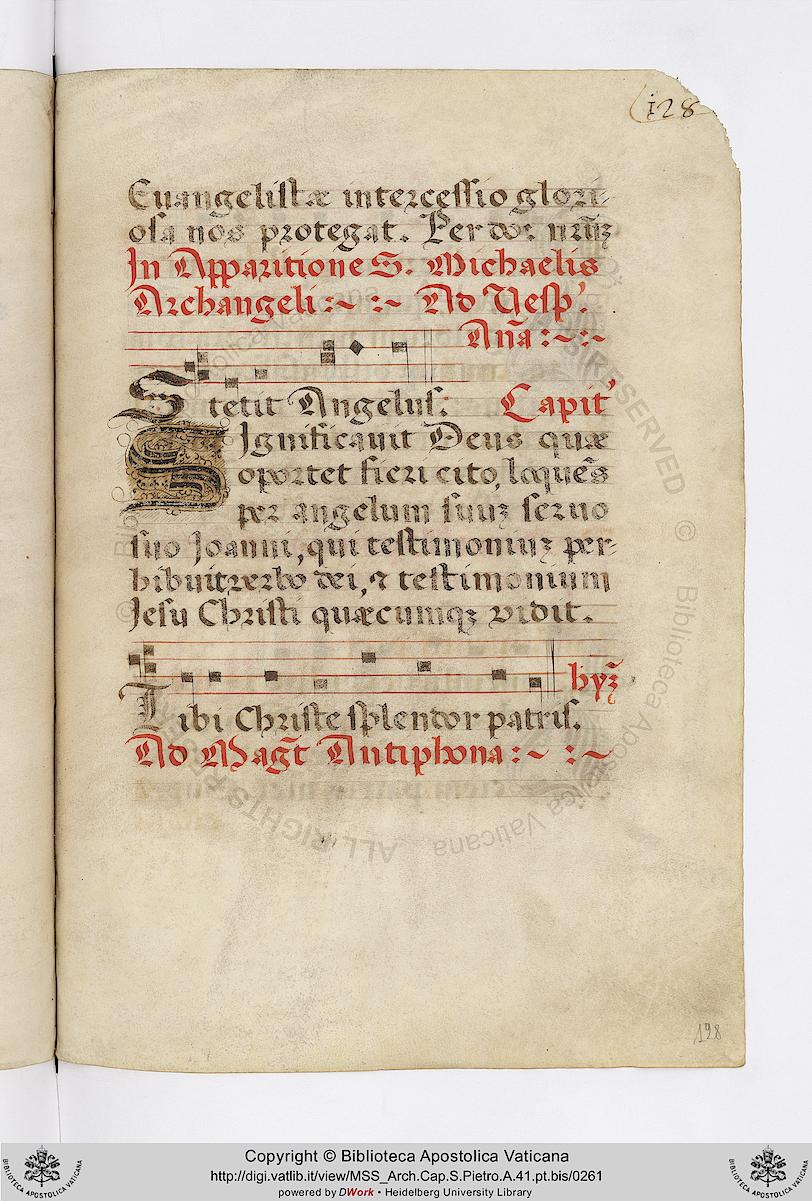 128
Euangelistæ intercessio glori-
osa nos protegat. Per do: nrūʒ
In Apparitione S. Michaelis
Archangeli :~ :~ Ad Uesp'.
Anã :~:~
Stetit Angelus. Capit'
SIgnificauit Deus quæ
oportet fieri cito, loquēs
per angelum suuʒ seruo
suo Joanni, qui testimoniuʒ per-
hibuit verbo dei, ⁊ testimonium
Jesu Christi quæcumqʒ vidit.
hyʒ̃
Tibi Christe splendor patris.
Ad Magt̃ Antiphona :~ :~
198
Copyright © Biblioteca Apostolica Vaticana
http://digi.vatlib.it/view/MSS_Arch.Cap.S.Pietro.A.41.pt.bis/0261
powered by DWork • Heidelberg University Library
BIBLIOTECA APOSTOLICA VATICANA
BIBLIOTECA APOSTOLICA VATICANA
© Biblioteca Apostolica Vaticana ALL RIGHTS RESERVED